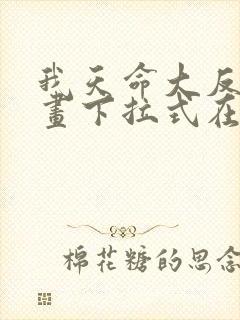 我天命大反
畫下拉式在
棉花糖的思念